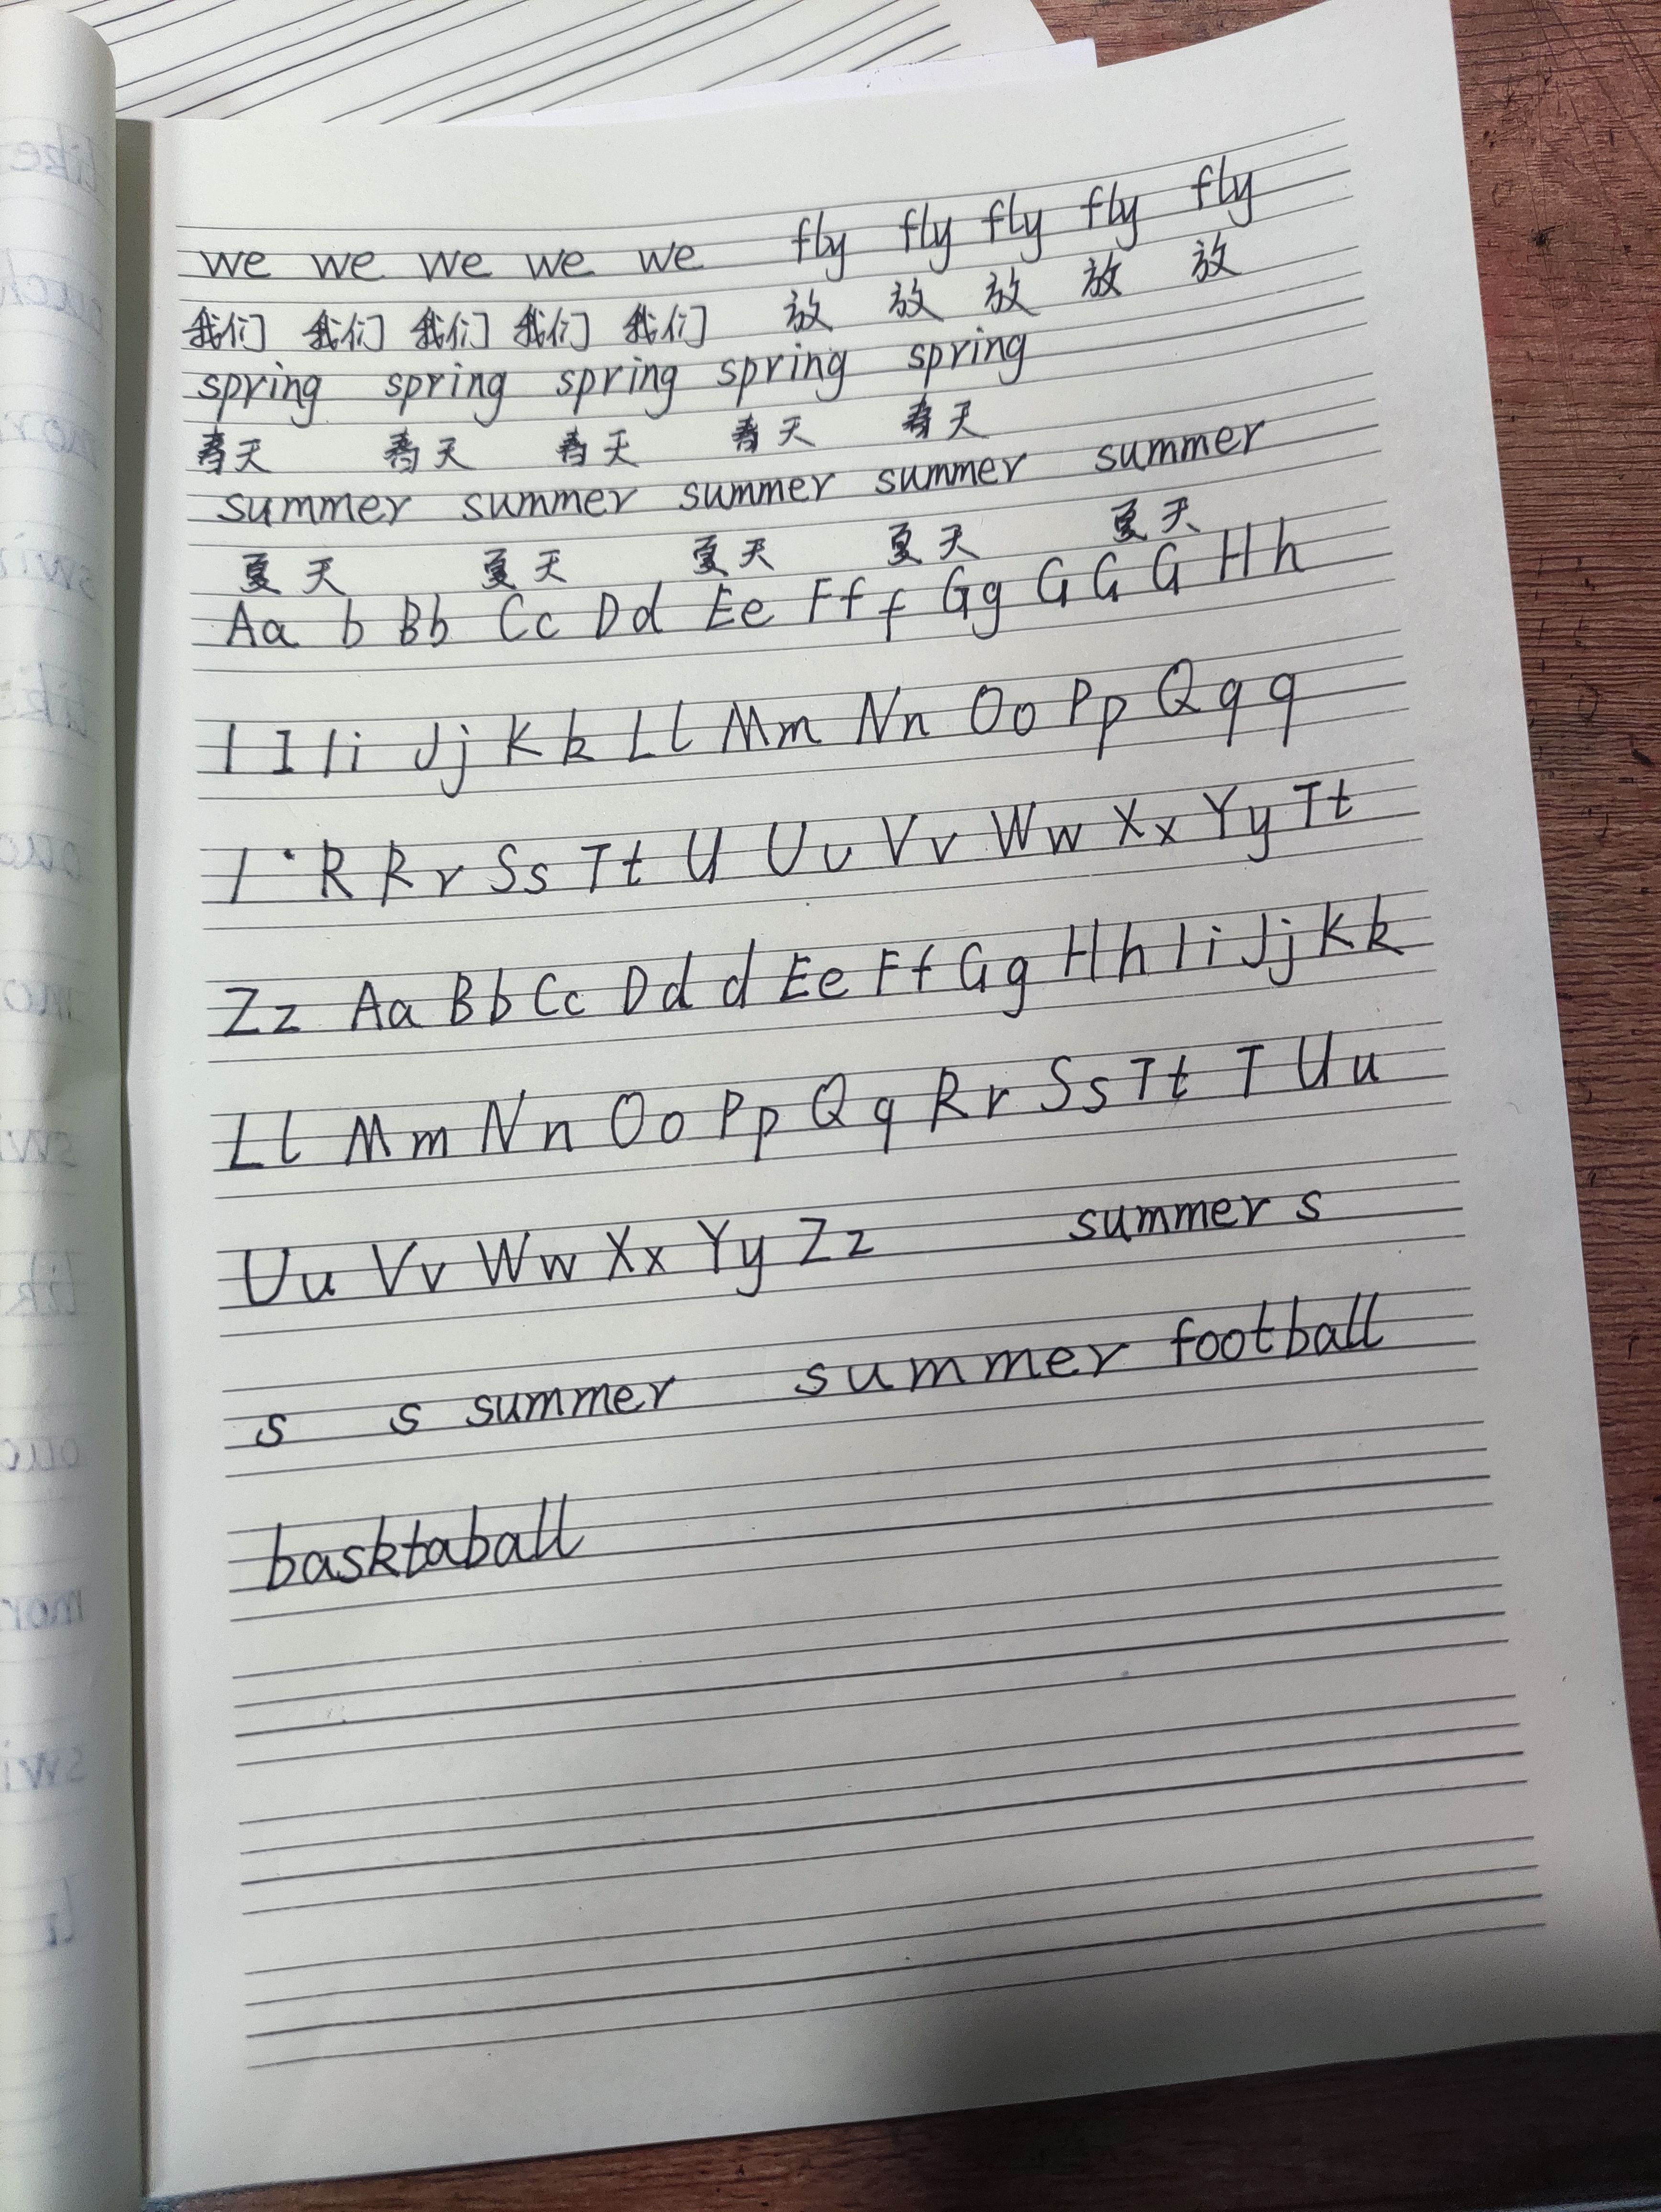 we we we we we fly fly fly fly fly
我们 我们 我们 我们 我们 放 放 放 放 放
spring spring spring spring spring
春天 春天 春天 春天 春天
summer summer summer summer summer
夏天 夏天 夏天 夏天 夏天
Aa b Bb Cc Dd Ee Ff f Gg G G G Hh
I I Ii Jj Kk Ll Mm Nn Oo Pp Qq q
I · R Rr Ss Tt U Uu Vv Ww Xx Yy Tt
Zz Aa Bb Cc Dd d Ee Ff Gg Hh Ii Jj Kk
Ll Mm Nn Oo Pp Qq Rr Ss Tt T Uu
Uu Vv Ww Xx Yy Zz summer s
s s summer summer football
basktaball